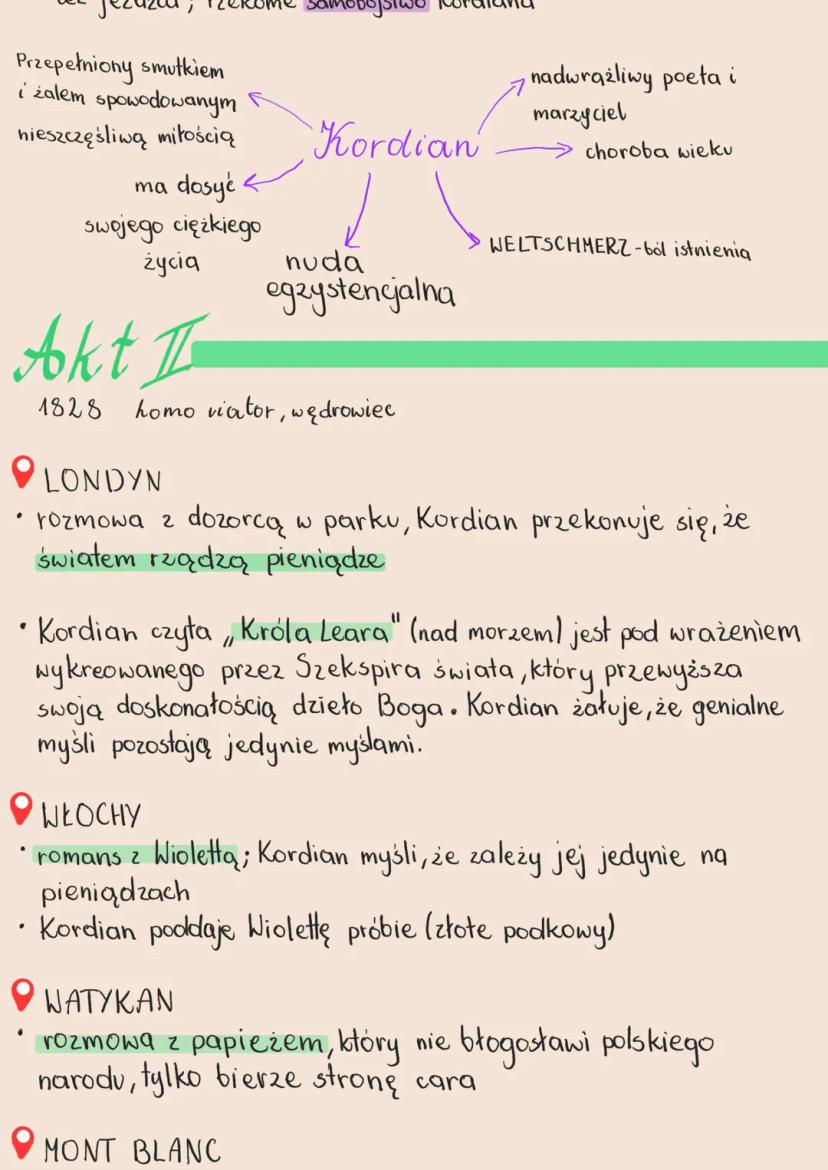 bez jeźdźca; rzekome samobójstwo Kordiana
Przepełniony smutkiem
i żalem spowodowanym
nieszczęśliwą miłością
nadwrażliwy poeta i
marzyciel
Kordian
choroba wieku
ma dosyć
swojego ciężkiego
życia
nuda
egzystencjalna
WELTSCHMERZ - ból istnienia
Akt II
1828 homo viator, wędrowiec
LONDYN
• rozmowa z dozorcą w parku, Kordian przekonuje się, że
światem rządzą pieniądze
• Kordian czyta „Króla Leara" (nad morzem) jest pod wrażeniem
wykreowanego przez Szekspira świata, który przewyższa
swoją doskonałością dzieło Boga. Kordian żałuje, że genialne
myśli pozostają jedynie myślami.
WŁOCHY
• romans z Wiolettą; Kordian myśli, że zależy jej jedynie na
pieniądzach
• Kordian poddaje Wiolettę próbie (złote podkowy)
WATYKAN
• rozmowa z papieżem, który nie błogosławi polskiego
narodu, tylko bierze stronę cara
MONT BLANC